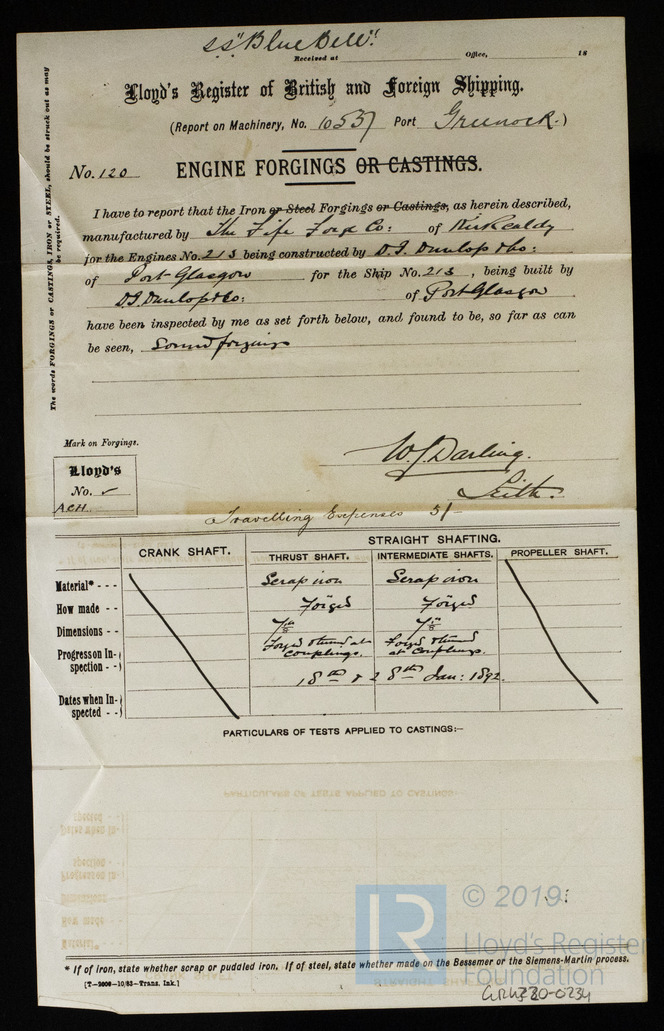 S.S. "Blue Bell".
Received at Office, 18
Lloyd's Register of British and Foreign Shipping.
(Report on Machinery, No. 10537 Port Greenock.)
No. 120 ENGINE FORGINGS OR CASTINGS.
I have to report that the Iron or Steel Forgings or Castings, as herein described,
manufactured by The Fife Forge Co: of Kirkcaldy
for the Engines No. 213 being constructed by D. J. Dunlop & Co:
of Port Glasgow for the Ship No. 213, being built by
D. J. Dunlop & Co: of Port Glasgow
have been inspected by me as set forth below, and found to be, so far as can
be seen, Sound forgings
The words FORGINGS or CASTINGS, IRON or STEEL, should be struck out as may
be required.
Mark on Forgings.
Lloyd's
No. ✓
A.C.H.
W. J. Darling.
Leith.
Travelling Expenses 5/-
CRANK SHAFT. STRAIGHT SHAFTING.
THRUST SHAFT. INTERMEDIATE SHAFTS. PROPELLER SHAFT.
Material* - - - Scrap iron Scrap iron
How made - - Forged Forged
Dimensions - -
Progress on In-
spection - - Forged & turned at couplings. Forged & turned at couplings.
Dates when In-
spected - - 18th & 28th Jan: 1892.
PARTICULARS OF TESTS APPLIED TO CASTINGS:—
* If of iron, state whether scrap or puddled iron. If of steel, state whether made on the Bessemer or the Siemens-Martin process.
[T—2000—10/83—Trans. Ink.]
LR © 2019
Lloyd's Register
Foundation
GRK220-0234